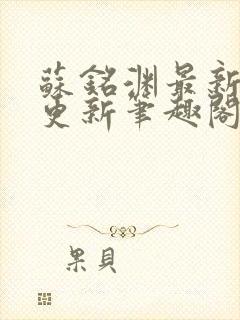 蘇銘淵最新
更新筆趣閣
果貝